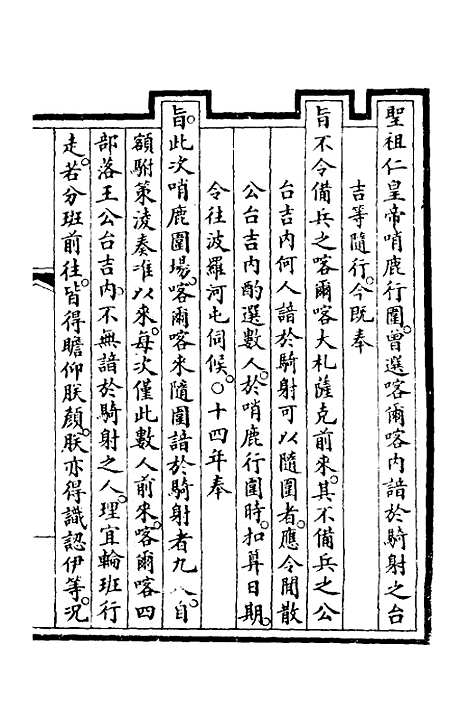 聖祖仁皇帝哨鹿行圍。曾選喀爾喀內諳於騎射之台
吉等隨行。今既奉
旨不令備兵之喀爾喀大札薩克前來。其不備兵之公
台吉內何人諳於騎射可以隨圍者。應令閒散
公台吉內酌選數人。於哨鹿行圍時。扣算日期。
令往波羅河屯伺候。○十四年奉
旨。此次哨鹿圍場。喀爾喀來隨圍諳於騎射者九人。自
額駙策淩奏准以來。每次僅此數人前來。喀爾喀四
部落王公台吉內。不無諳於騎射之人。理宜輪班行
走。若分班前往。皆得瞻仰朕顏。朕亦得識認伊等。況